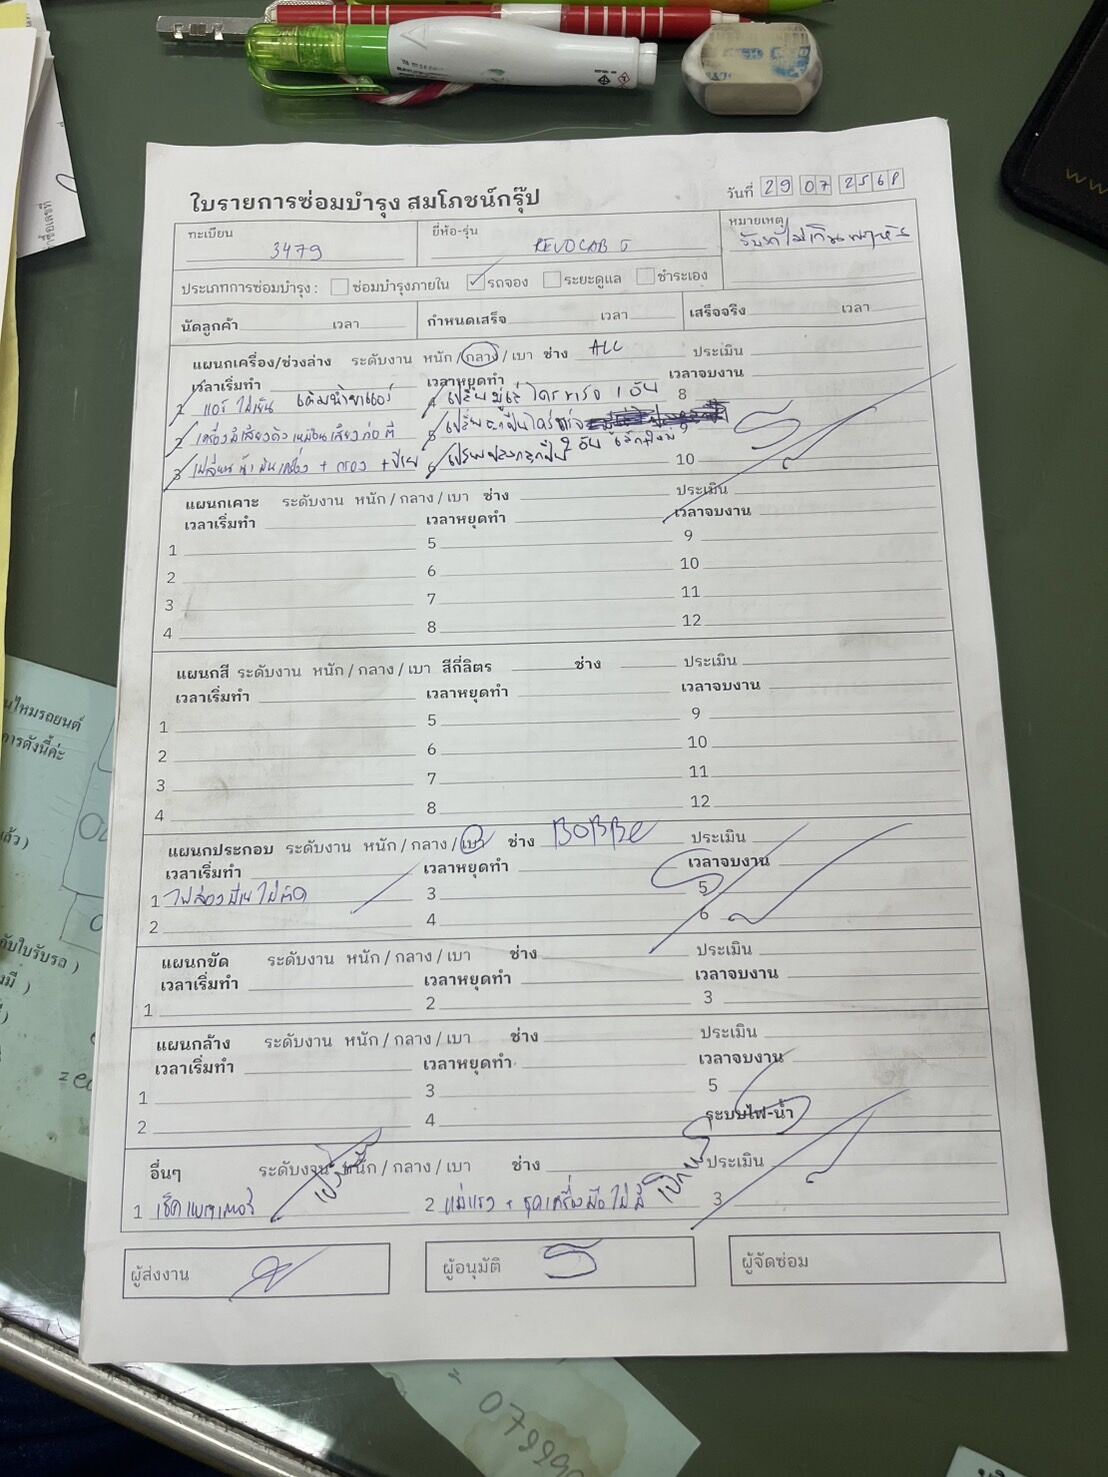 ใบรายการซ่อมบำรุง สมโภชน์กรุ๊ป
วันที่ 29 07 2568
ทะเบียน 3479
ยี่ห้อ-รุ่น REVOCAB G
หมายเหตุ
ประเภทการซ่อมบำรุง : ซ่อมบำรุงภายใน รถจอง ระยะดูแล ชำระเอง
นัดลูกค้า เวลา กำหนดเสร็จ เวลา เสร็จจริง เวลา
แผนกเครื่อง/ช่วงล่าง ระดับงาน หนัก / กลาง / เบา ช่าง ALL ประเมิน
เวลาเริ่มทำ เวลาหยุดทำ เวลาจบงาน
1 แอร์ ไม่เย็น เติมน้ำยาแอร์ 4 เปลี่ยน 1 อัน 8
2 เครื่องมีเสียงดัง เหมือนเสียง 5 9
3 เปลี่ยนน้ำมันเครื่อง + กรอง 6 2 อัน 10
แผนกเคาะ ระดับงาน หนัก / กลาง / เบา ช่าง ประเมิน
เวลาเริ่มทำ เวลาหยุดทำ เวลาจบงาน
1 5 9
2 6 10
3 7 11
4 8 12
แผนกสี ระดับงาน หนัก / กลาง / เบา สีกี่ลิตร ช่าง ประเมิน
เวลาเริ่มทำ เวลาหยุดทำ เวลาจบงาน
1 5 9
2 6 10
3 7 11
4 8 12
แผนกประกอบ ระดับงาน หนัก / กลาง / เบา ช่าง BOBBe ประเมิน
เวลาเริ่มทำ เวลาหยุดทำ เวลาจบงาน
1 ไฟส่อง ไม่ติด 3 5
2 4 6
แผนกขัด ระดับงาน หนัก / กลาง / เบา ช่าง ประเมิน
เวลาเริ่มทำ เวลาหยุดทำ เวลาจบงาน
1 2 3
แผนกล้าง ระดับงาน หนัก / กลาง / เบา ช่าง ประเมิน
เวลาเริ่มทำ เวลาหยุดทำ เวลาจบงาน
1 3 5
2 4 ระบบไฟ-น้ำ
อื่นๆ ระดับงาน หนัก / กลาง / เบา ช่าง ประเมิน
1 เช็คแบตเตอรี่ 2 แม่แรง + ชุดเครื่องมือ ไม่มี 3
ผู้ส่งงาน ผู้อนุมัติ ผู้จัดซ่อม